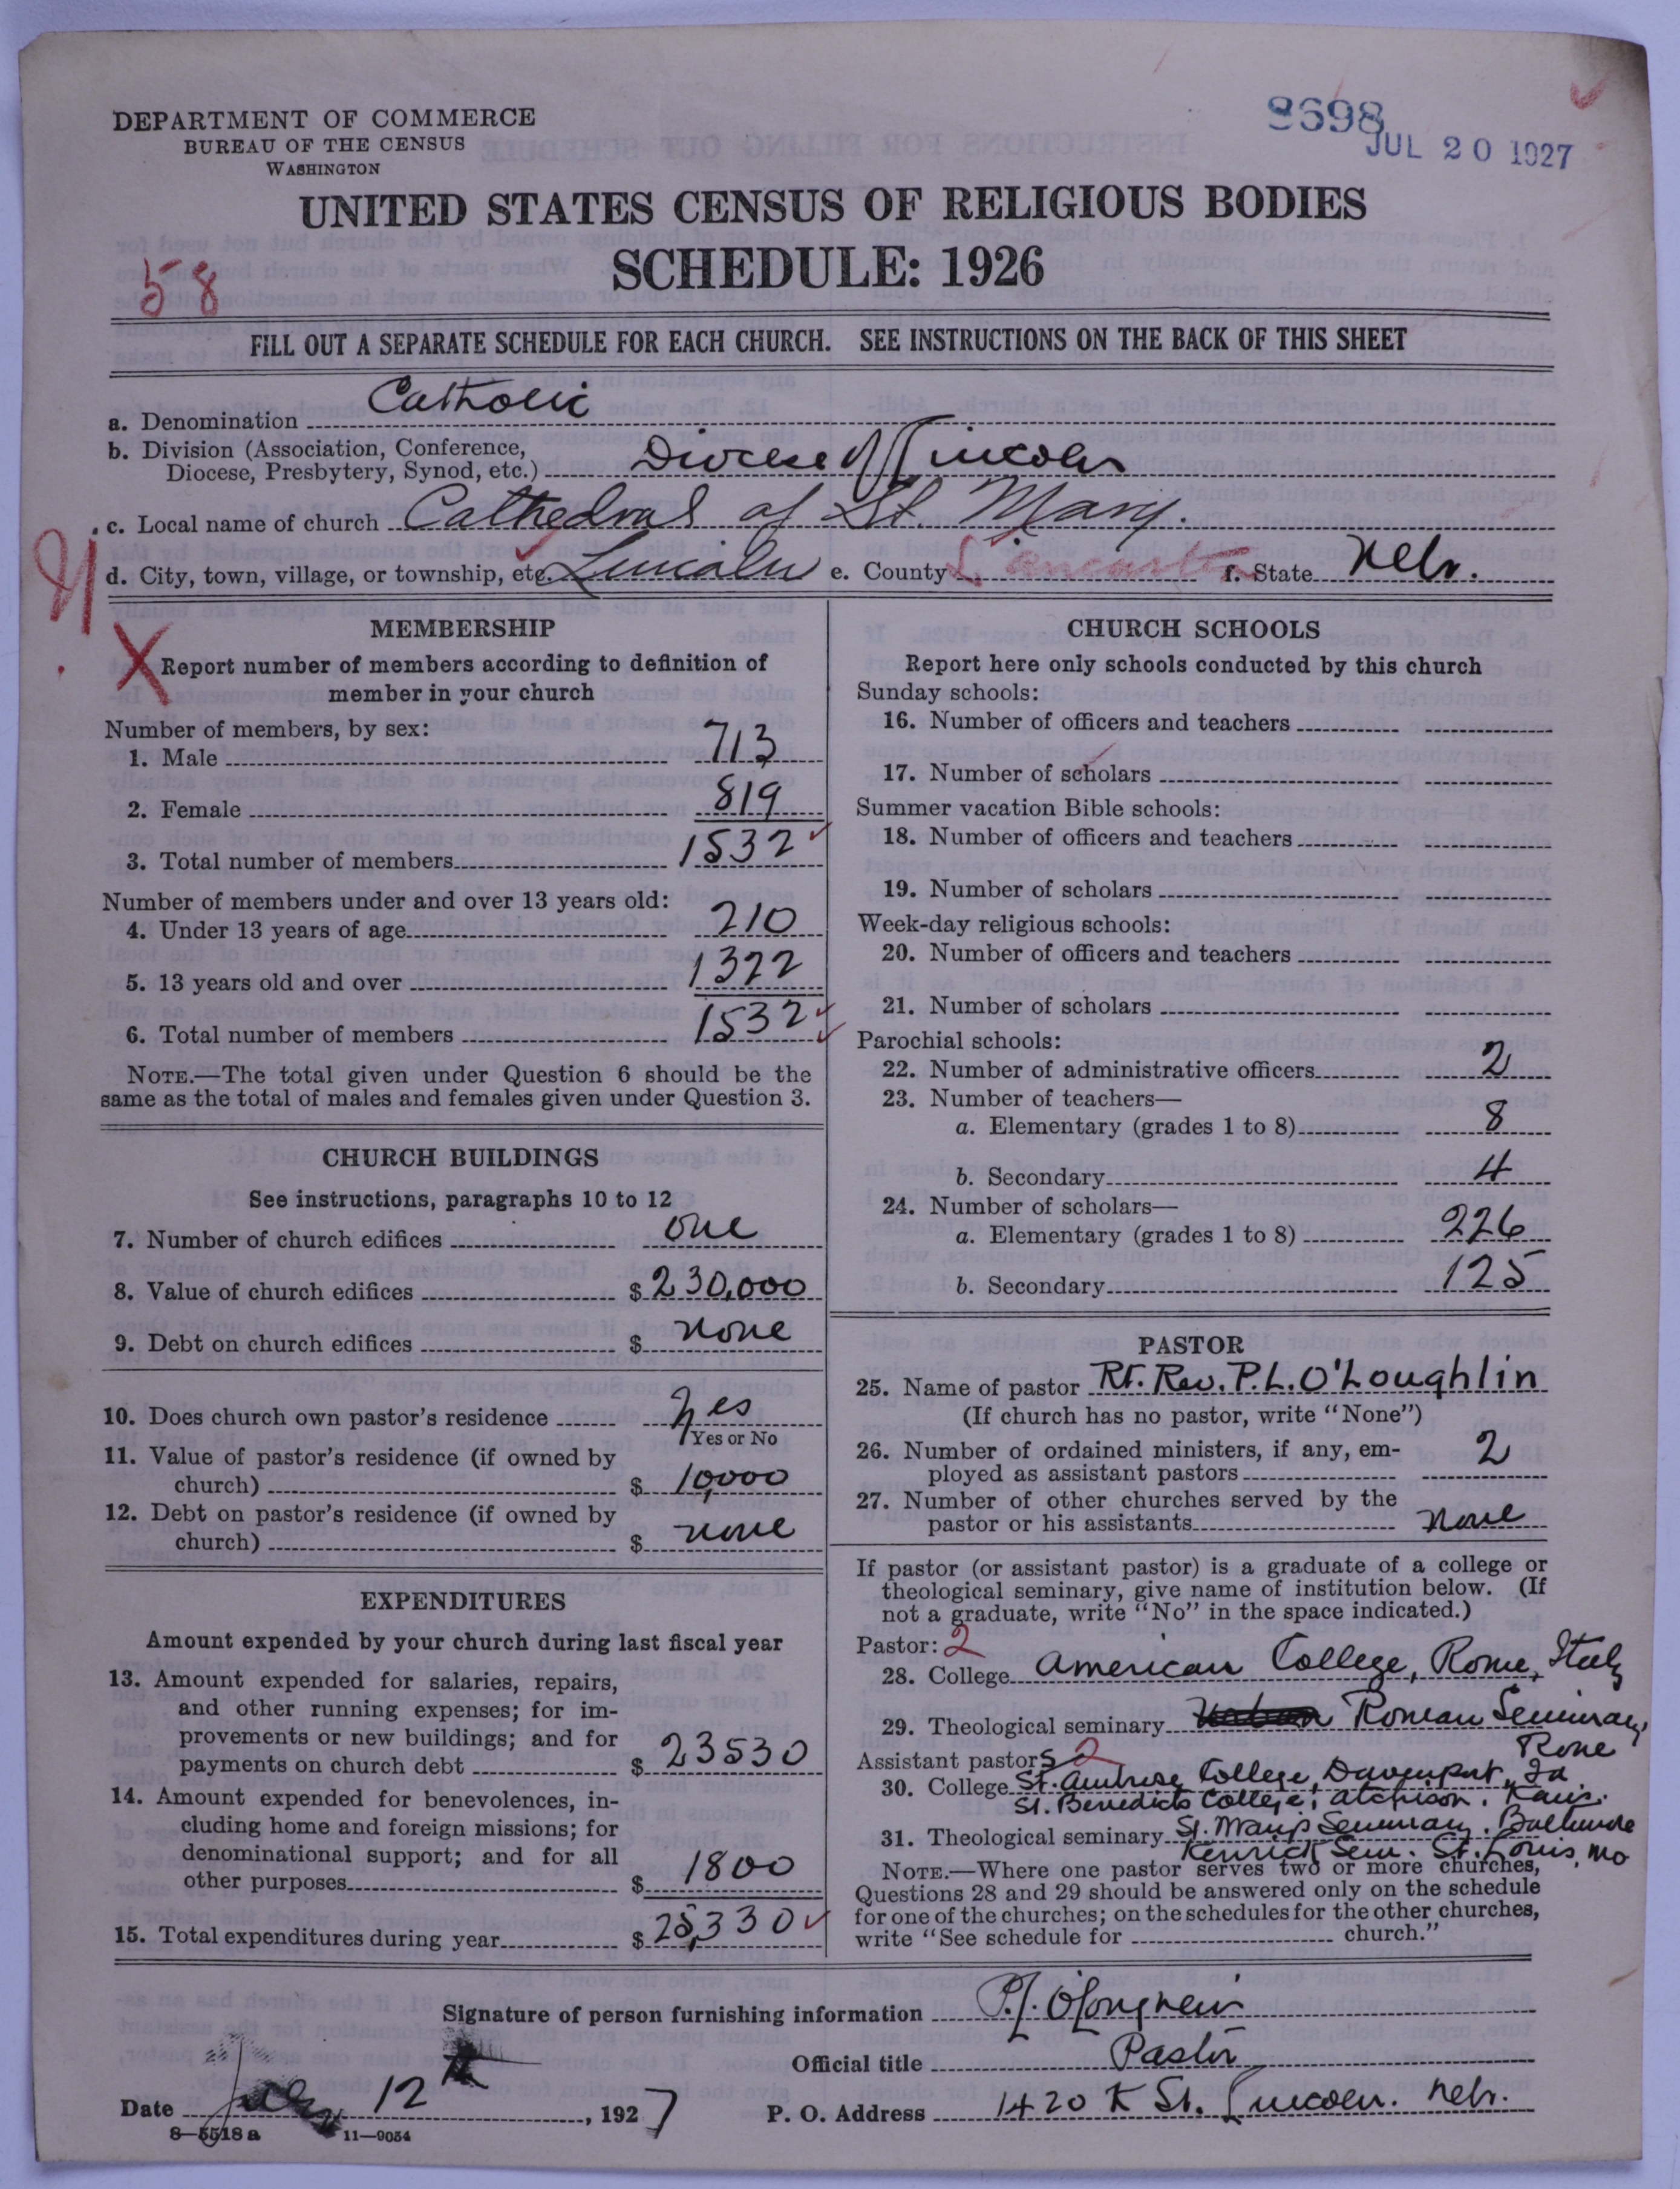 DEPARTMENT OF COMMERCE
BUREAU OF THE CENSUS
WASHINGTON
8698
JUL 20 1927
UNITED STATES CENSUS OF RELIGIOUS BODIES
SCHEDULE: 1926
58
FILL OUT A SEPARATE SCHEDULE FOR EACH CHURCH. SEE INSTRUCTIONS ON THE BACK OF THIS SHEET
a. Denomination Catholic
b. Division (Association, Conference,
Diocese, Presbytery, Synod, etc.) Diocese of Lincoln
c. Local name of church Cathedral of St Mary.
d. City, town, village, or township, etc. Lincoln e. County Lancaster f. State Nebr.
MEMBERSHIP
Report number of members according to definition of
member in your church
Number of members, by sex:
1. Male 713
2. Female 819
3. Total number of members 1532
Number of members under and over 13 years old:
4. Under 13 years of age 210
5. 13 years old and over 1322
6. Total number of members 1532
NOTE.—The total given under Question 6 should be the
same as the total of males and females given under Question 3.
CHURCH BUILDINGS
See instructions, paragraphs 10 to 12
7. Number of church edifices one
8. Value of church edifices $ 230,000
9. Debt on church edifices $ none
10. Does church own pastor's residence Yes
Yes or No
11. Value of pastor's residence (if owned by
church) $ 10,000
12. Debt on pastor's residence (if owned by
church) $ none
EXPENDITURES
Amount expended by your church during last fiscal year
13. Amount expended for salaries, repairs,
and other running expenses; for im-
provements or new buildings; and for
payments on church debt $ 23530
14. Amount expended for benevolences, in-
cluding home and foreign missions; for
denominational support; and for all
other purposes $ 1800
15. Total expenditures during year $ 25,330
CHURCH SCHOOLS
Report here only schools conducted by this church
Sunday schools:
16. Number of officers and teachers
17. Number of scholars
Summer vacation Bible schools:
18. Number of officers and teachers
19. Number of scholars
Week-day religious schools:
20. Number of officers and teachers
21. Number of scholars
Parochial schools:
22. Number of administrative officers 2
23. Number of teachers—
a. Elementary (grades 1 to 8) 8
b. Secondary 4
24. Number of scholars—
a. Elementary (grades 1 to 8) 226
b. Secondary 125
PASTOR
25. Name of pastor Rt. Rev. P.L. O'Loughlin
(If church has no pastor, write "None")
26. Number of ordained ministers, if any, em-
ployed as assistant pastors 2
27. Number of other churches served by the
pastor or his assistants none
If pastor (or assistant pastor) is a graduate of a college or
theological seminary, give name of institution below. (If
not a graduate, write "No" in the space indicated.)
Pastor: 2
28. College American College, Rome, Italy
29. Theological seminary Roman Seminary,
Rome
Assistant pastors 2
30. College St. Ambrose College, Davenport, Ia.
St. Benedicts College, Atchison, Kans.
31. Theological seminary St. Marys Seminary, Baltimore
Kenrick Sem. St. Louis, Mo
NOTE.—Where one pastor serves two or more churches,
Questions 28 and 29 should be answered only on the schedule
for one of the churches; on the schedules for the other churches,
write "See schedule for church."
Signature of person furnishing information P.L. O'Loughlin
Official title Pastor
Date 12 th, 1927 P. O. Address 1420 K St. Lincoln. Nebr.
8—5518 a 11—9054